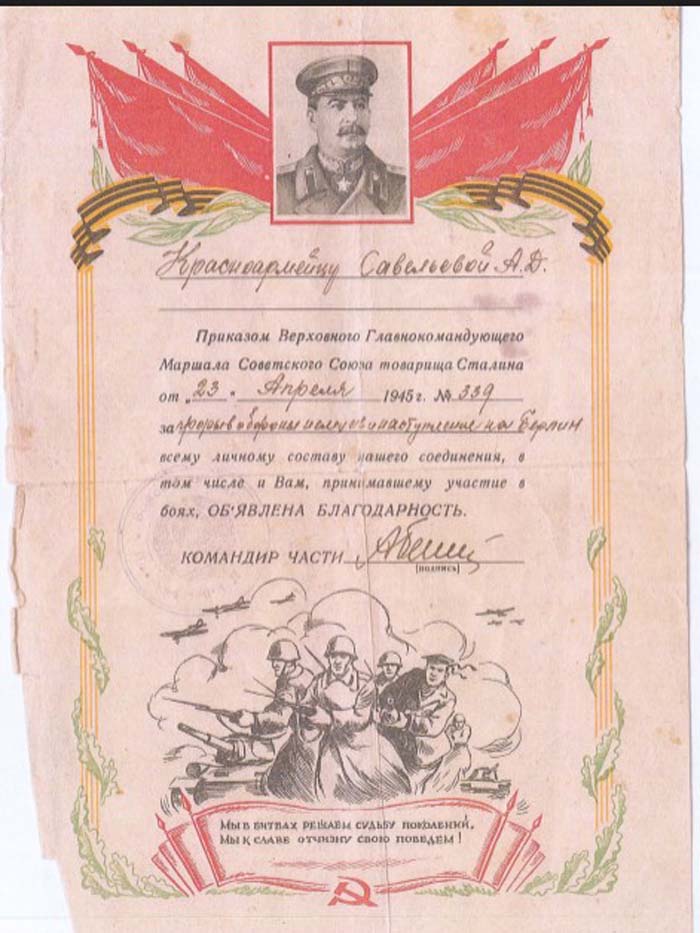 Красноармейцу Савельевой А.Д.
Приказом Верховного Главнокомандующего
Маршала Советского Союза товарища Сталина
от „23“ Апреля 1945 г. № 339
за прорыв обороны немцев и наступление на Берлин
всему личному составу нашего соединения, в
том числе и Вам, принимавшему участие в
боях, ОБ'ЯВЛЕНА БЛАГОДАРНОСТЬ.
КОМАНДИР ЧАСТИ
(подпись)
МЫ В БИТВАХ РЕШАЕМ СУДЬБУ ПОКОЛЕНИЙ,
МЫ К СЛАВЕ ОТЧИЗНУ СВОЮ ПОВЕДЕМ!